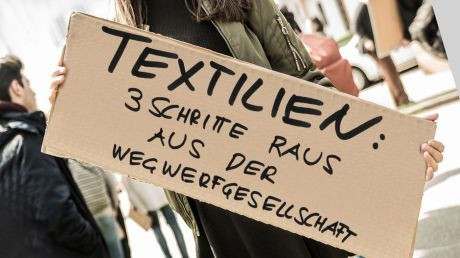 TEXTILIEN:
3 SCHRITTE RAUS
AUS DER
WEGWERFGESELLSCHAFT